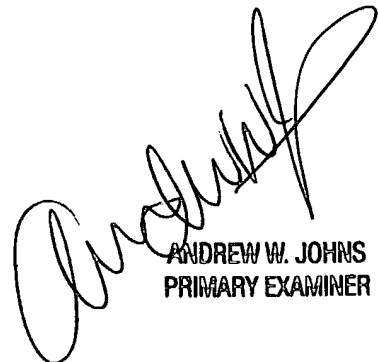 ANDREW W. JOHNS
PRIMARY EXAMINER